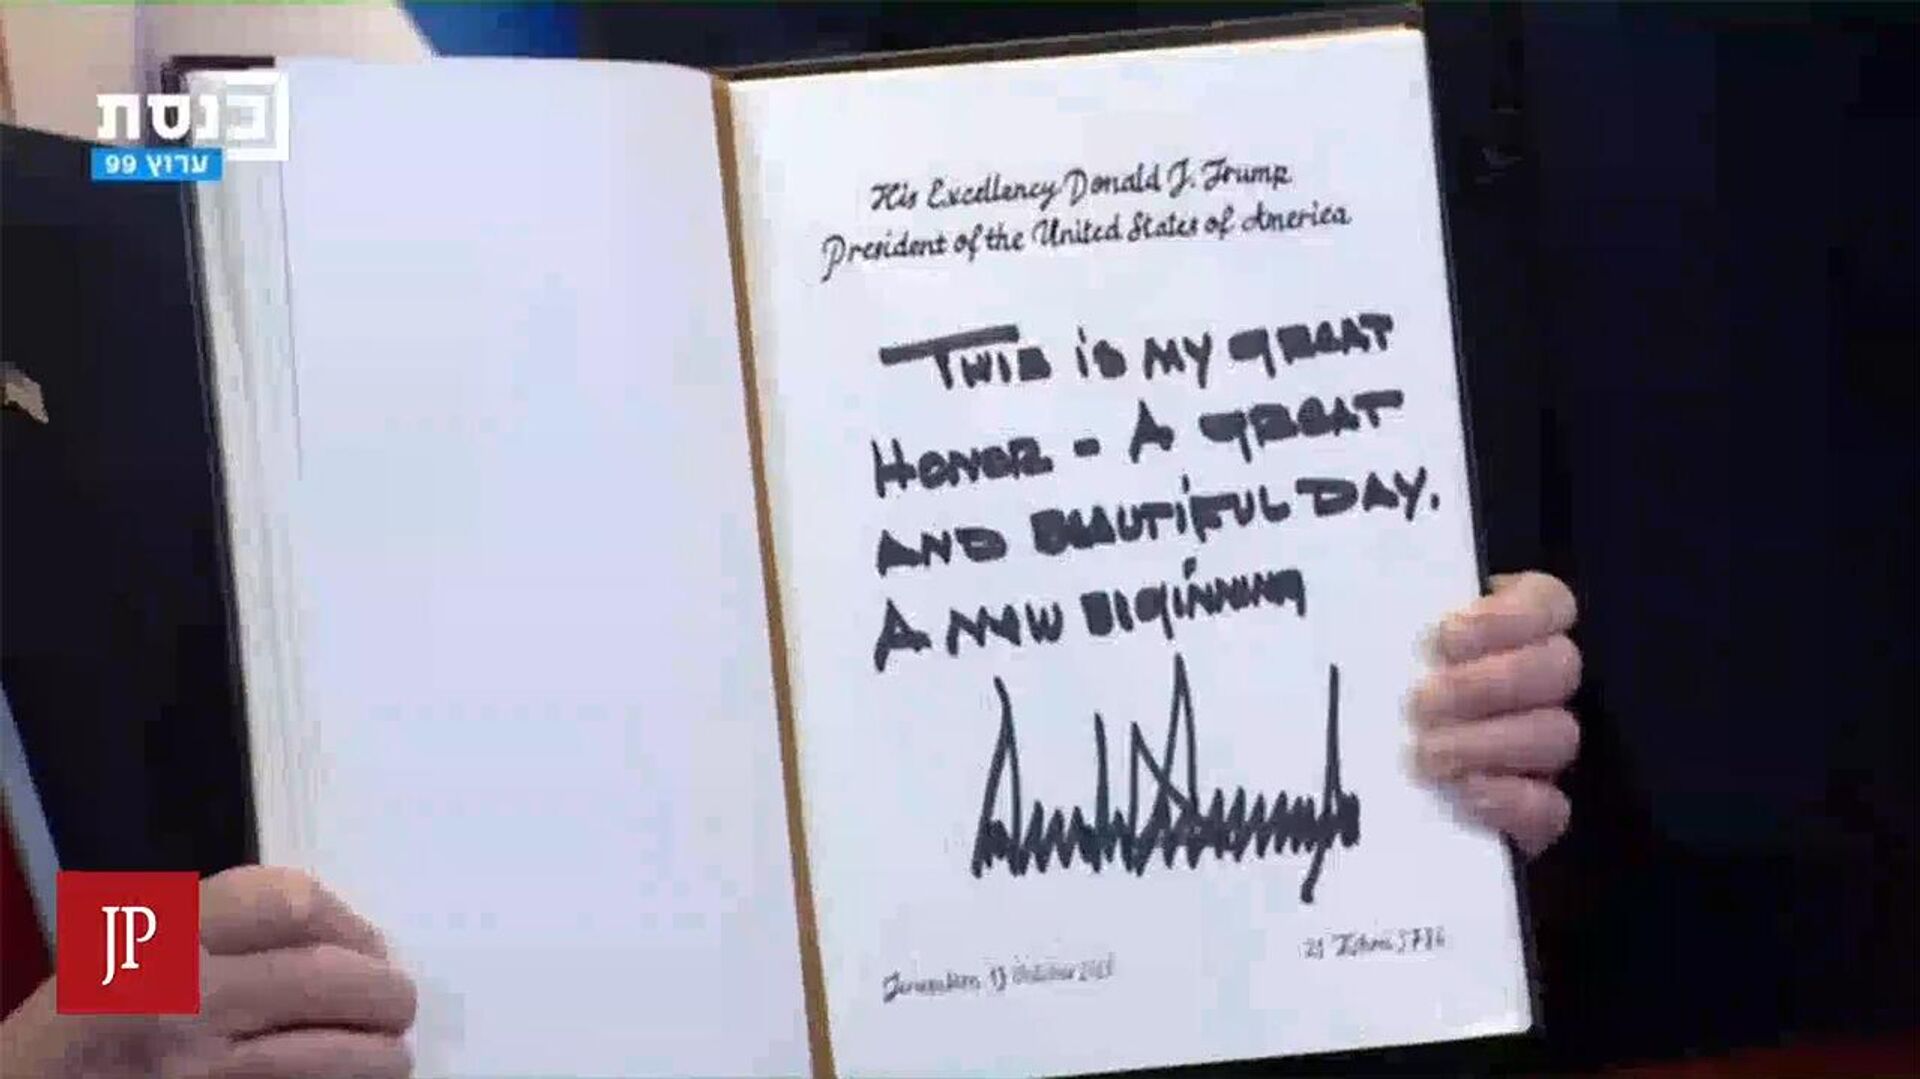 כנסת
ערוץ 99
His Excellency Donald J. Trump
President of the United States of America
THIS is MY GREAT
HONOR - A GREAT
AND BEAUTIFUL DAY.
A NEW BEGINNING
Jerusalem, 13 October 2025
21 Tishrei 5786
JP